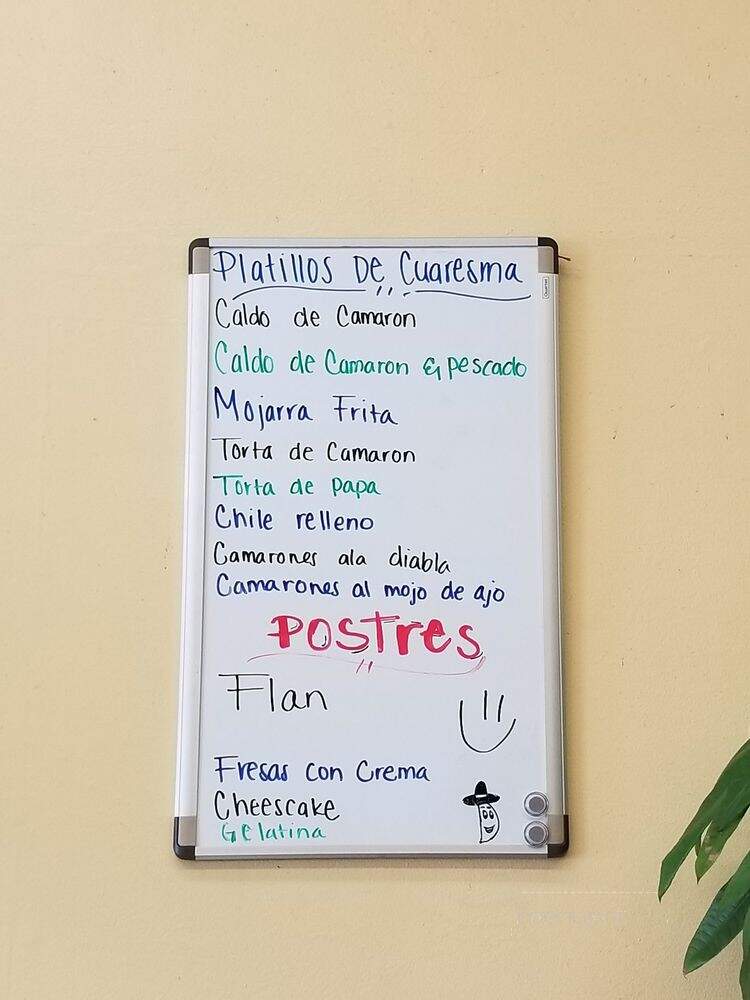 Platillos De Cuaresma
Caldo de Camaron
Caldo de Camaron & pescado
Mojarra Frita
Torta de Camaron
Torta de papa
Chile relleno
Camarones ala diabla
Camarones al mojo de ajo
Postres
Flan
Fresas con Crema
Cheescake
Gelatina